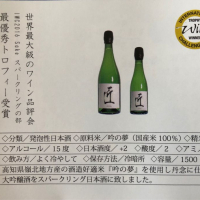 世界最大級のワイン品評会
IWC2016 Sake スパークリングの部
最優秀トロフィー受賞
INTERNATIONAL
WINE
CHALLENGE
匠
匠
◇分類／発泡性日本酒 ◇原料米／吟の夢（国産米100%）◇精
◇アルコール／15度 ◇日本酒度／+2 ◇酸度／2 ◇アミノ
◇飲み方／よく冷やして ◇保存方法／冷暗所 ◇容量／1500
高知県嶺北地方産の酒造好適米『吟の夢』を使用し丹念に仕
大吟醸酒をスパークリング日本酒に致しました。